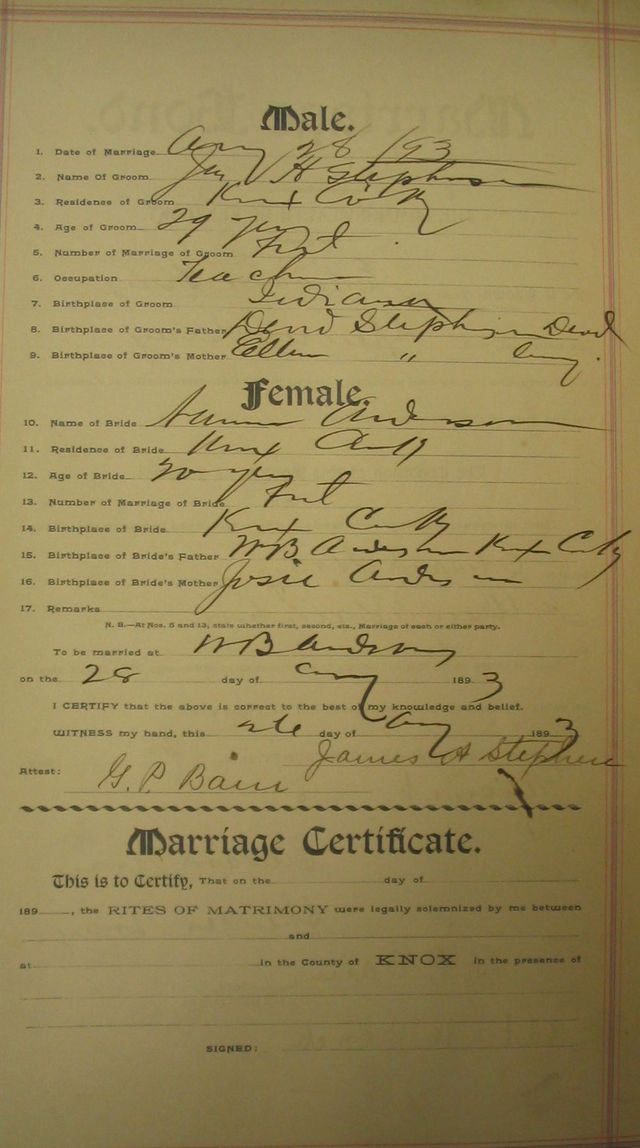 Male.
1. Date of Marriage Aug 28 / 93
2. Name Of Groom Jas H Stephens
3. Residence of Groom Knox Co Ky
4. Age of Groom 29 yrs
5. Number of Marriage of Groom First
6. Occupation Teacher
7. Birthplace of Groom Indiana
8. Birthplace of Groom's Father David Stephens Dead
9. Birthplace of Groom's Mother Ellen " living
Female.
10. Name of Bride Anderson
11. Residence of Bride Knox Co Ky
12. Age of Bride 20 yrs
13. Number of Marriage of Bride First
14. Birthplace of Bride Knox Co Ky
15. Birthplace of Bride's Father W B Anderson Knox Co Ky
16. Birthplace of Bride's Mother Josie Anderson
17. Remarks
N. B.—At Nos. 5 and 13, state whether first, second, etc., Marriage of each or either party.
To be married at W B Andersons
on the 28 day of Aug 1893
I CERTIFY that the above is correct to the best of my knowledge and belief.
WITNESS my hand, this 26 day of Aug 1893
James H Stephens
Attest: G. P. Bain
Marriage Certificate.
This is to Certify, That on the day of
189 , the RITES OF MATRIMONY were legally solemnized by me between
and
at in the County of KNOX in the presence of
SIGNED: